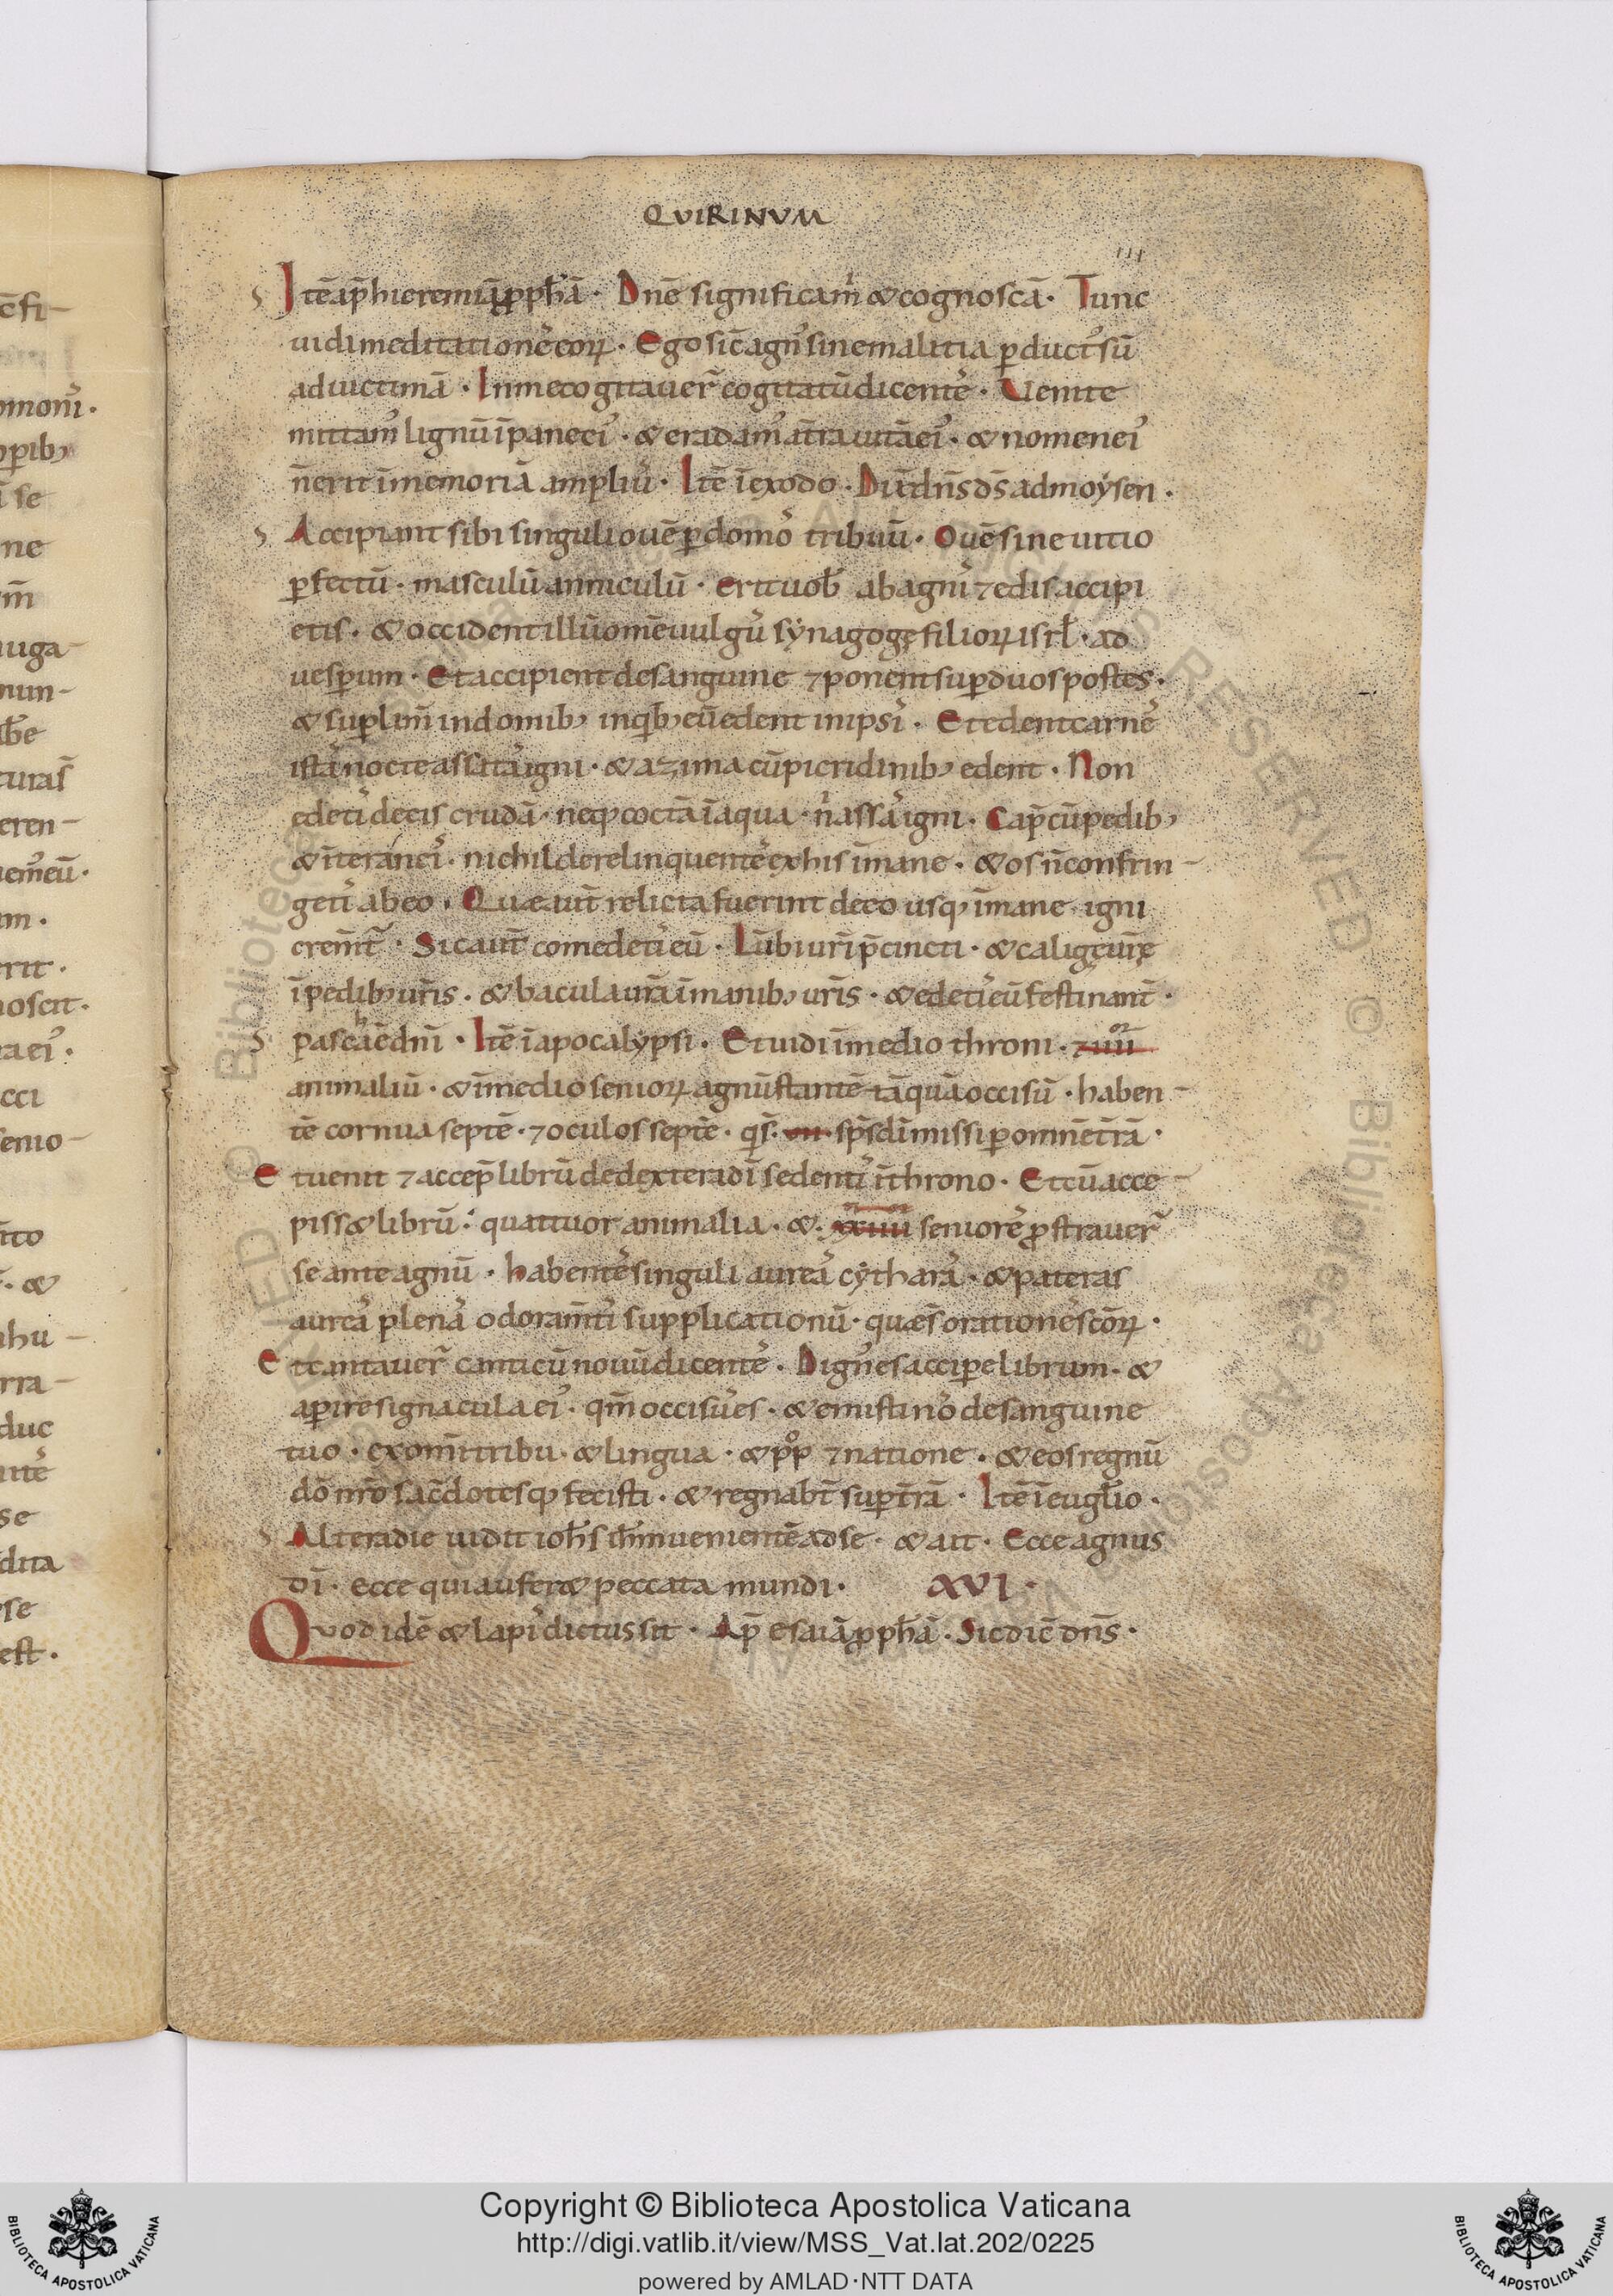 QVIRINVM
III
Itē ap̄ hieremiā ꝓph̄ā · Dnē significa m̄ & cognoscā · Tunc
uidi meditationeˢ eoꝝ · Ego sic̄ agnꝰ sine malitia ꝑductꝰ sū
ad uictimā · In me cogitauer̄ cogitatū dicenteˢ · Uenite
mittamꝰ lignū ī pane eiꝰ · & eradamꝰ a t̄ra uitā eiꝰ · & nomen eiꝰ
n̄ erit ī memoriā ampliuˢ · Itē ī exodo · Dix̄ dn̄s ds̄ ad moẏsen ·
Accipiant sibi singuli ouē ꝑ domoˢ tribuū · Ouē sine uitio
ꝑfectū · masculū anniculū · erit uob̄ · ab agniˢ ⁊ edis accipi
etis · & occident illū om̄e uulguˢ sẏnagogę filioꝝ isrł · ad
uesꝑum · Et accipient de sanguine ⁊ ponent suꝑ duos postes ·
& suꝑ lim̄ in domibꝰ in qⁱbꝰ eū edent in ipsiˢ · Et edent carneˢ
istā nocte assataˢ igni · & azima cū picridinibꝰ edent · Non
edetiˢ de eis crudā · neqꝫ coctā ī aqua · nⁱ assaˢ igni · Cap̄ cū pedibꝰ
& īteraneiˢ · nichil derelinquenteˢ ex his ī mane · & os n̄ confrin-
getiˢ ab eo · Quæ aut̄ relicta fuerint de eo usqꝫ ī mane · igni
crem̄t̄ · Sic aut̄ comedetiˢ eū · Lūbi ur̄i p̄cincti · & caligę ur̄ę
ī pedibꝰ ur̄is · & bacula ur̄a ī manibꝰ ur̄is · & edetiˢ eū festinant̄ ·
pascha ē dn̄i · Itē ī apocalẏpsi · Et uidi ī medio throni · ⁊ iiiiᵒʳ
animaliū · & ī medio senioꝝ agnū stantē tāquā occisū · haben-
tē cornua septē · ⁊ oculos septē · qⁱ s̄ · vii · sp̄s di missi ꝑ omnē t̄rā ·
Et uenit ⁊ accep̄ librū de dextera dī sedentiˢ ī throno · Et cū acce-
piss& librū : quattuor animalia · & · xxiiii senioreˢ ꝓstrauer̄
se ante agnū · habenteˢ singuli aureaˢ cẏtharaˢ · & pateras
aureaˢ plenaˢ odoram̄tiˢ supplicationū · quæ s̄ orationeˢ sc̄oꝝ ·
Et cantauer̄ canticū nouū dicenteˢ · Dignꝰ es acciꝑe librum · &
aꝑire signacula eiꝰ · qm̄ occisuˢ es · & emisti noˢ de sanguine
tuo · ex om̄i tribu · & lingua · & pᵒp̄ ⁊ natione · & eos regnū
dō nr̄o sac̄dotesqꝫ fecisti · & regnab̄t suꝑ t̄rā · Itē ī eugl̄io ·
Altera die uidit ioh̄s ih̄m uenientē ad se · & ait · Ecce agnus
dī · ecce qui aufert peccata mundi · XVI ·
Quod idē & lapiˢ dictus sit · Ap̄ esaiā ꝓph̄ā · Sic dic̄ dn̄s ·
Copyright © Biblioteca Apostolica Vaticana
http://digi.vatlib.it/view/MSS_Vat.lat.202/0225
powered by AMLAD·NTT DATA
BIBLIOTECA APOSTOLICA VATICANA
BIBLIOTECA APOSTOLICA VATICANA